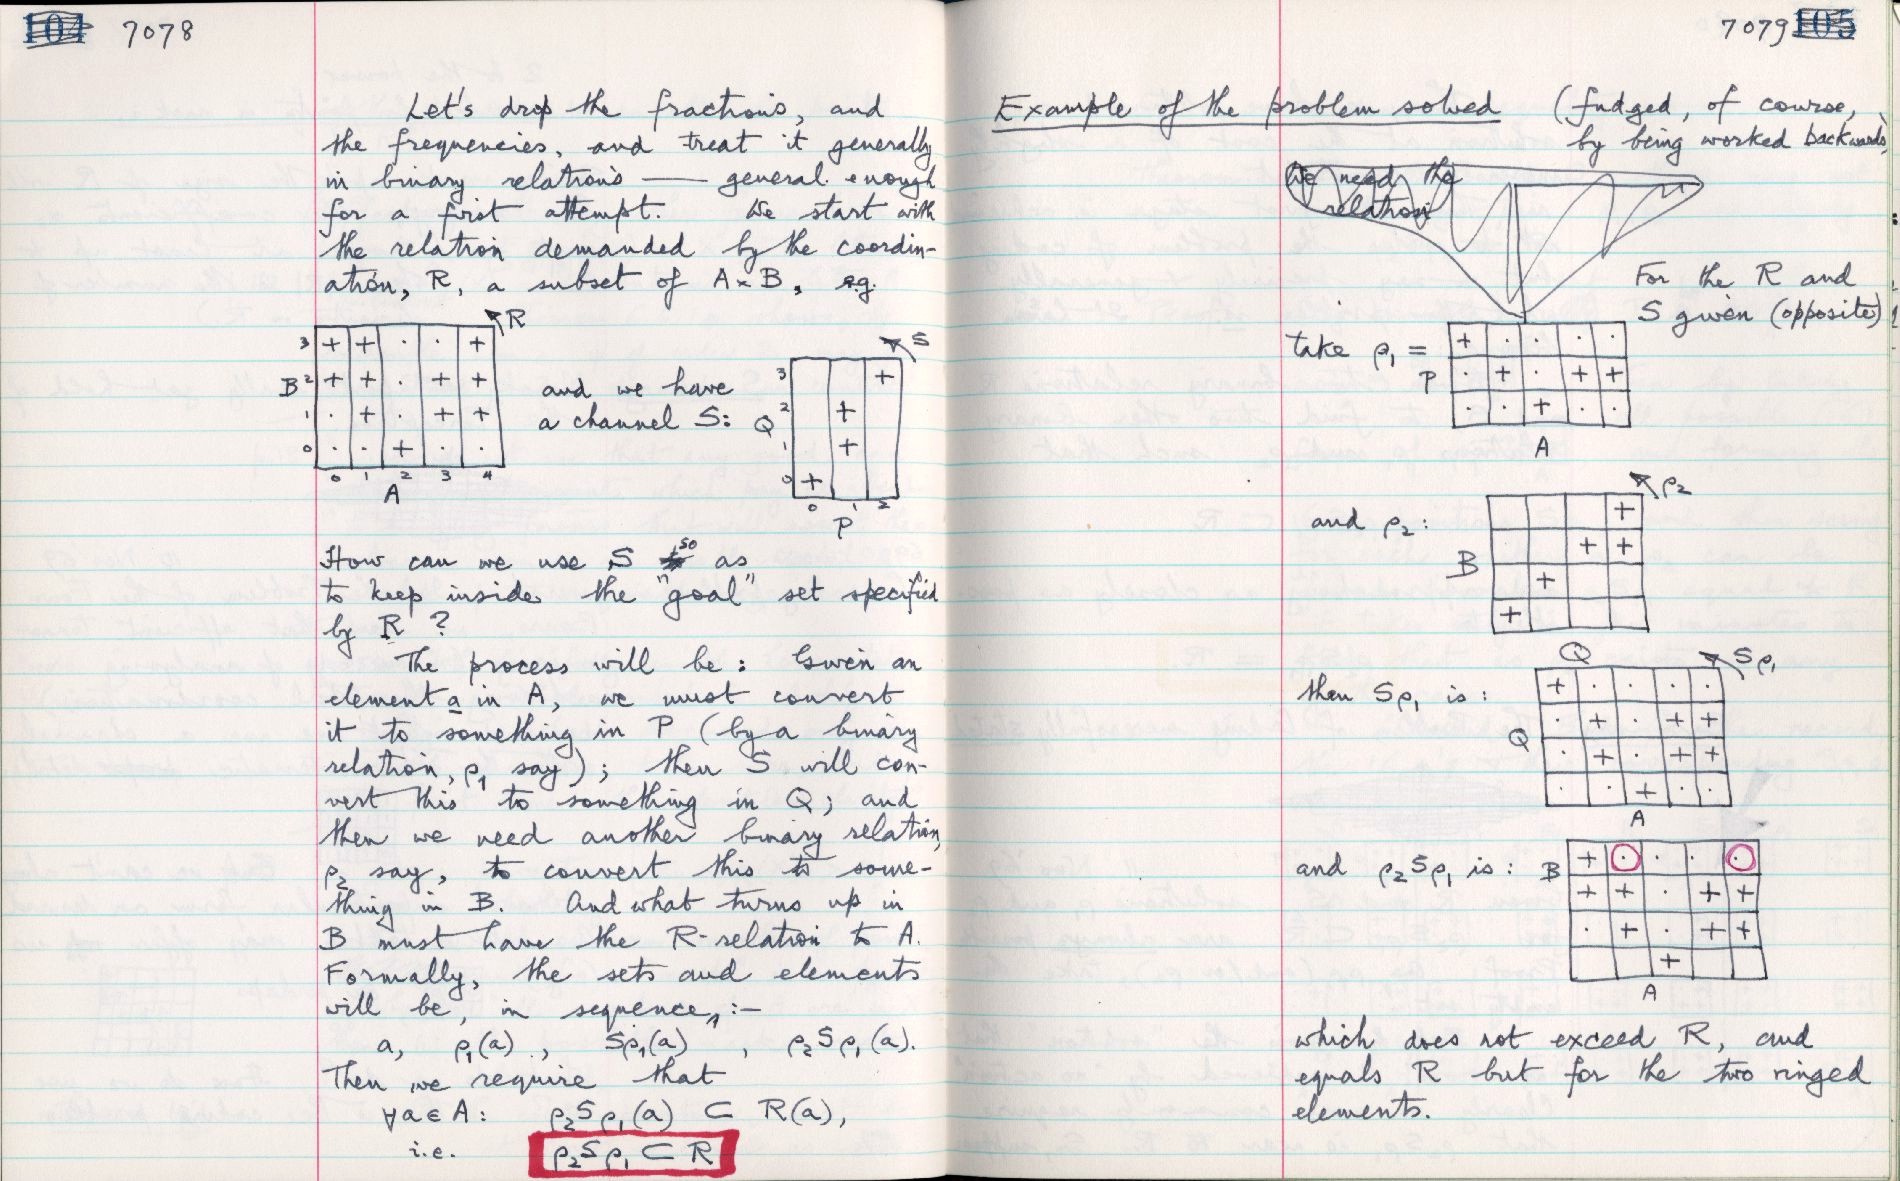 104 7078
Let's drop the fractions, and
the frequencies, and treat it generally
in binary relations — general enough
for a first attempt. We start with
the relation demanded by the coordin-
ation, R, a subset of A×B, e.g.
R
3 + + · · +
B 2 + + · + +
1 · + · + +
0 · · + · ·
0 1 2 3 4
A
and we have
a channel S:
S
3 +
Q 2 +
1 +
0 +
0 1 2
P
How can we use S so as
to keep inside the "goal" set specified
by R ?
The process will be: Given an
element a in A, we must convert
it to something in P (by a binary
relation, ρ₁ say); then S will con-
vert this to something in Q; and
then we need another binary relation,
ρ₂ say, to convert this to some-
thing in B. And what turns up in
B must have the R-relation to A.
Formally, the sets and elements
will be, in sequence, :-
a, ρ₁(a), Sρ₁(a), ρ₂Sρ₁(a).
Then we require that
∀a∈A: ρ₂Sρ₁(a) ⊂ R(a),
i.e. ρ₂Sρ₁ ⊂ R
7079 105
Example of the problem solved (fudged, of course,
by being worked backwards)
We need the
relation
For the R and
S given (opposite)
take ρ₁ =
+ · · · ·
P · + · + +
· · + · ·
A
and ρ₂:
ρ₂
+
+ +
B +
+
then Sρ₁ is:
Q Sρ₁
+ · · · ·
· + · + +
Q · + · + +
· · + · ·
A
and ρ₂Sρ₁ is:
B + · · · ·
+ + · + +
· + · + +
+
A
which does not exceed R, and
equals R but for the two ringed
elements.